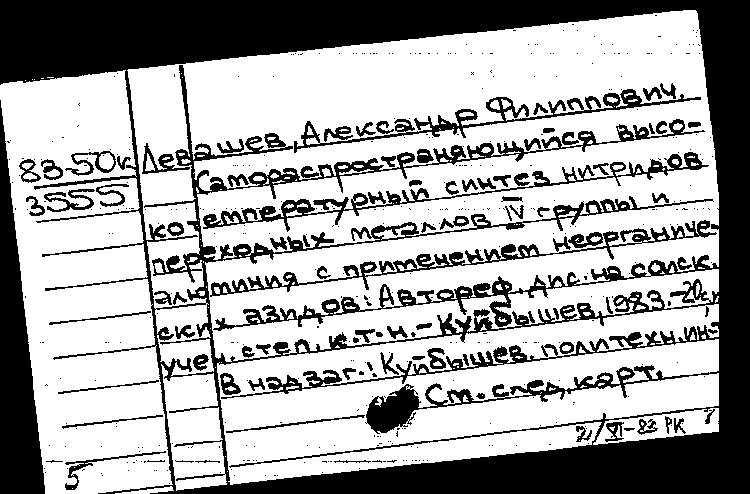 Левашев, Александр Филиппович.
83-50к
3555
Самораспространяющийся высо-
котемпературный синтез нитридов
переходных металлов IV группы и
алюминия с применением неорганиче-
ских азидов: Автореф. дис. на соиск.
учен. степ. к.т.н. - Куйбышев, 1983. - 20с.
В надзаг.: Куйбышев. политехн. ин-т
См. след. карт.
2/VI-83 РК
5